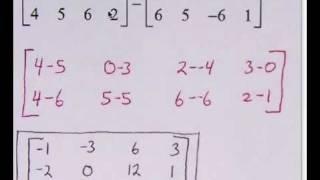 4 5 6 2 − 6 5 -6 1
4-5 0-3 2--4 3-0
4-6 5-5 6--6 2-1
-1 -3 6 3
-2 0 12 1